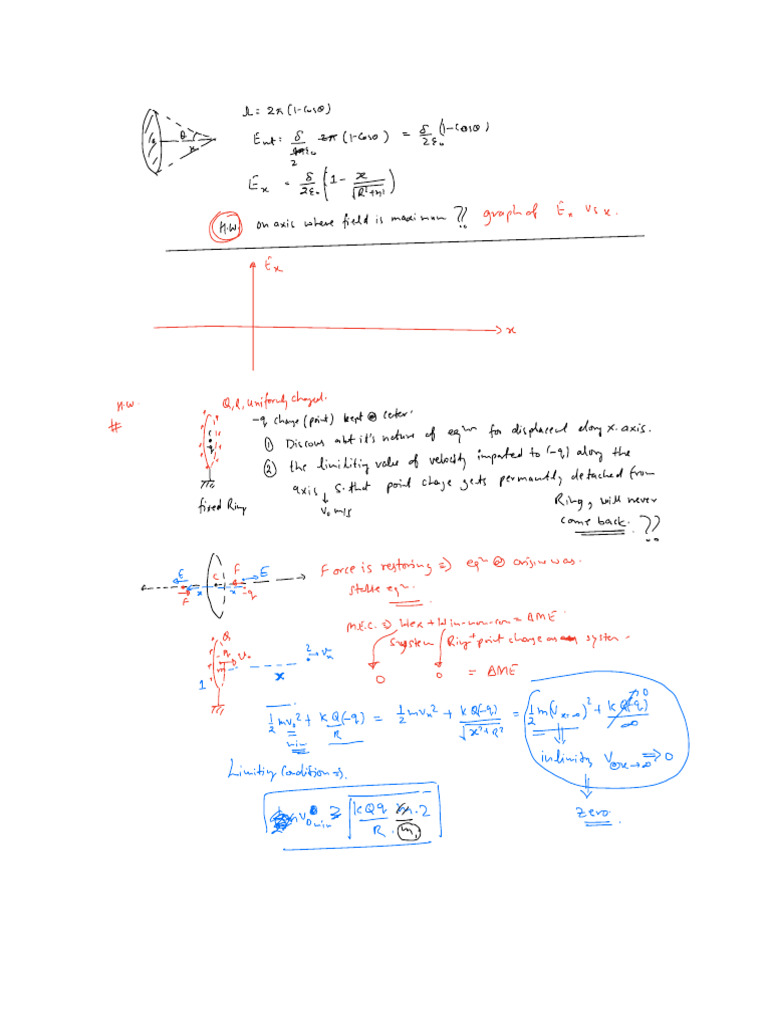 Ω: 2π(1-Cosθ)
θ
x
Enet: δ/2ε₀ 2π(1-Cosθ) = δ/2ε₀ (1-Cosθ)
Ex = δ/2ε₀ (1 - x/√(R²+x²))
H.W. on axis where field is maximum ?? graph of Ex vs x.
Ex
x
H.W. Q, R, uniformly charged.
# -q charge (point) kept @ ceter.
① Discous abt it's nature of eqm for displacemt along x-axis.
② the limiliting value of velocity imparted to (-q) along the
axis S.that point charge gets permauntly detached from
fixed Ring
v₀ m/s
Ring, will never
come back. ??
E F C F E
x x -q
Force is restoring ⇒ eqm @ origin was
stable eqm.
M.E.C. ⇒ Wex + Win-non-con = ΔME
System Ring + point charge as system.
0 0 = ΔME
Q -q m V₀ 2 Vx
1 x
1/2 mv₀² + kQ(-q)/R = 1/2 mvx² + kQ(-q)/√(x²+R²) = 1/2 m(Vx→∞)² + kQ(-q)/∞ →0
min
infinity V@x→∞ ⇒ 0
Limitiy Condition ⇒.
zero
v₀min ≥ √(kQq/R.m .2)